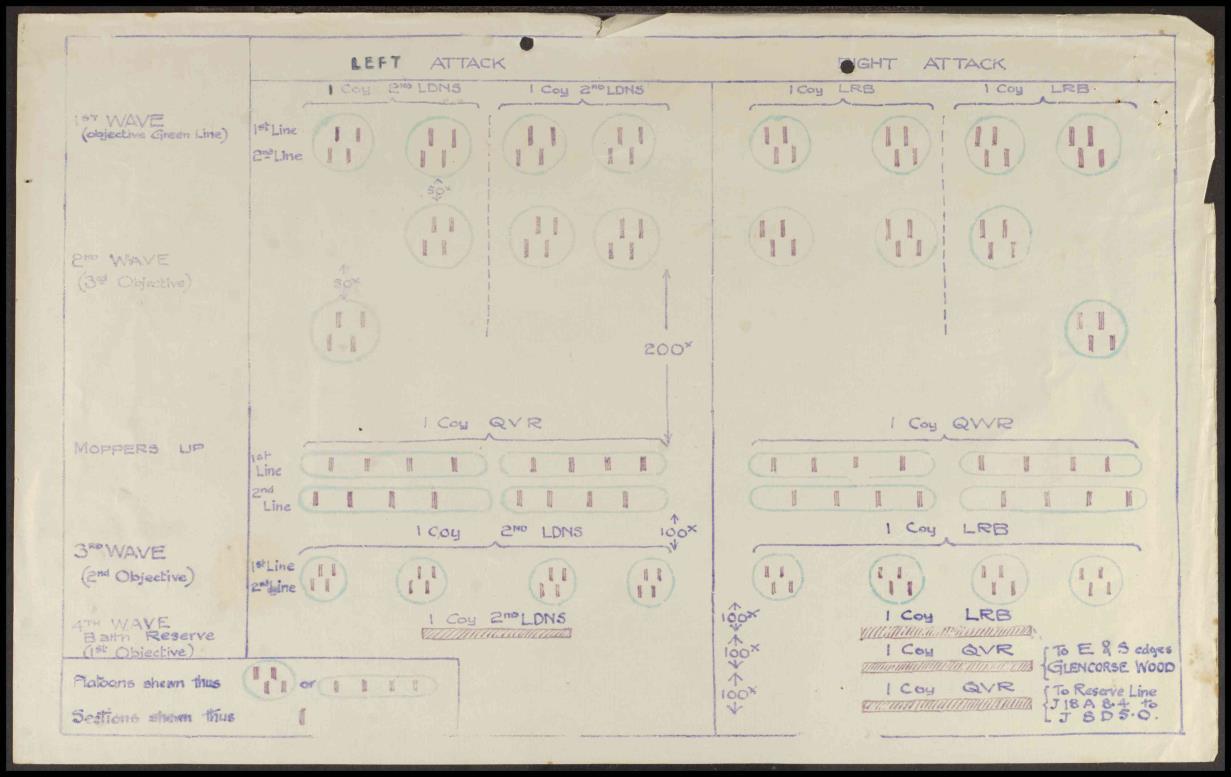 LEFT ATTACK
RIGHT ATTACK
1 Coy 2ND LDNS
1 Coy 2ND LDNS
1 Coy LRB
1 Coy LRB
1ST WAVE
(objective Green Line)
1st Line
2nd Line
50x
2ND WAVE
(3rd Objective)
50x
200x
1 Coy QVR
1 Coy QWR
MOPPERS UP
1st Line
2nd Line
1 Coy 2ND LDNS
100x
1 Coy LRB
3RD WAVE
(2nd Objective)
1st Line
2nd Line
4TH WAVE
Battn Reserve
(1st Objective)
1 Coy 2ND LDNS
100x
1 Coy LRB
100x
1 Coy QVR
To E & S edges
GLENCORSE WOOD
100x
1 Coy QVR
To Reserve Line
J 18 A 8.4 to
J 8 D 5.0.
Platoons shewn thus
or
Sections shewn thus